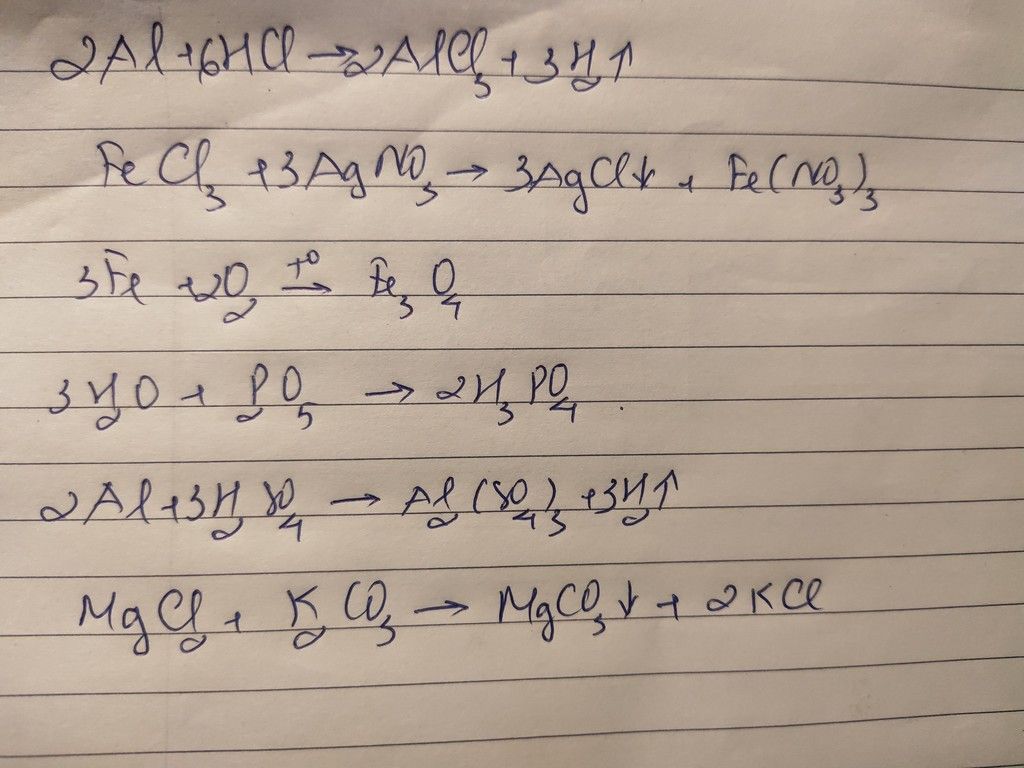 2Al + 6HCl → 2AlCl₃ + 3H₂↑
FeCl₃ + 3AgNO₃ → 3AgCl↓ + Fe(NO₃)₃
3Fe + 2O₂ →ᵗ° Fe₃O₄
3H₂O + P₂O₅ → 2H₃PO₄.
2Al + 3H₂SO₄ → Al₂(SO₄)₃ + 3H₂↑
MgCl₂ + K₂CO₃ → MgCO₃↓ + 2KCl